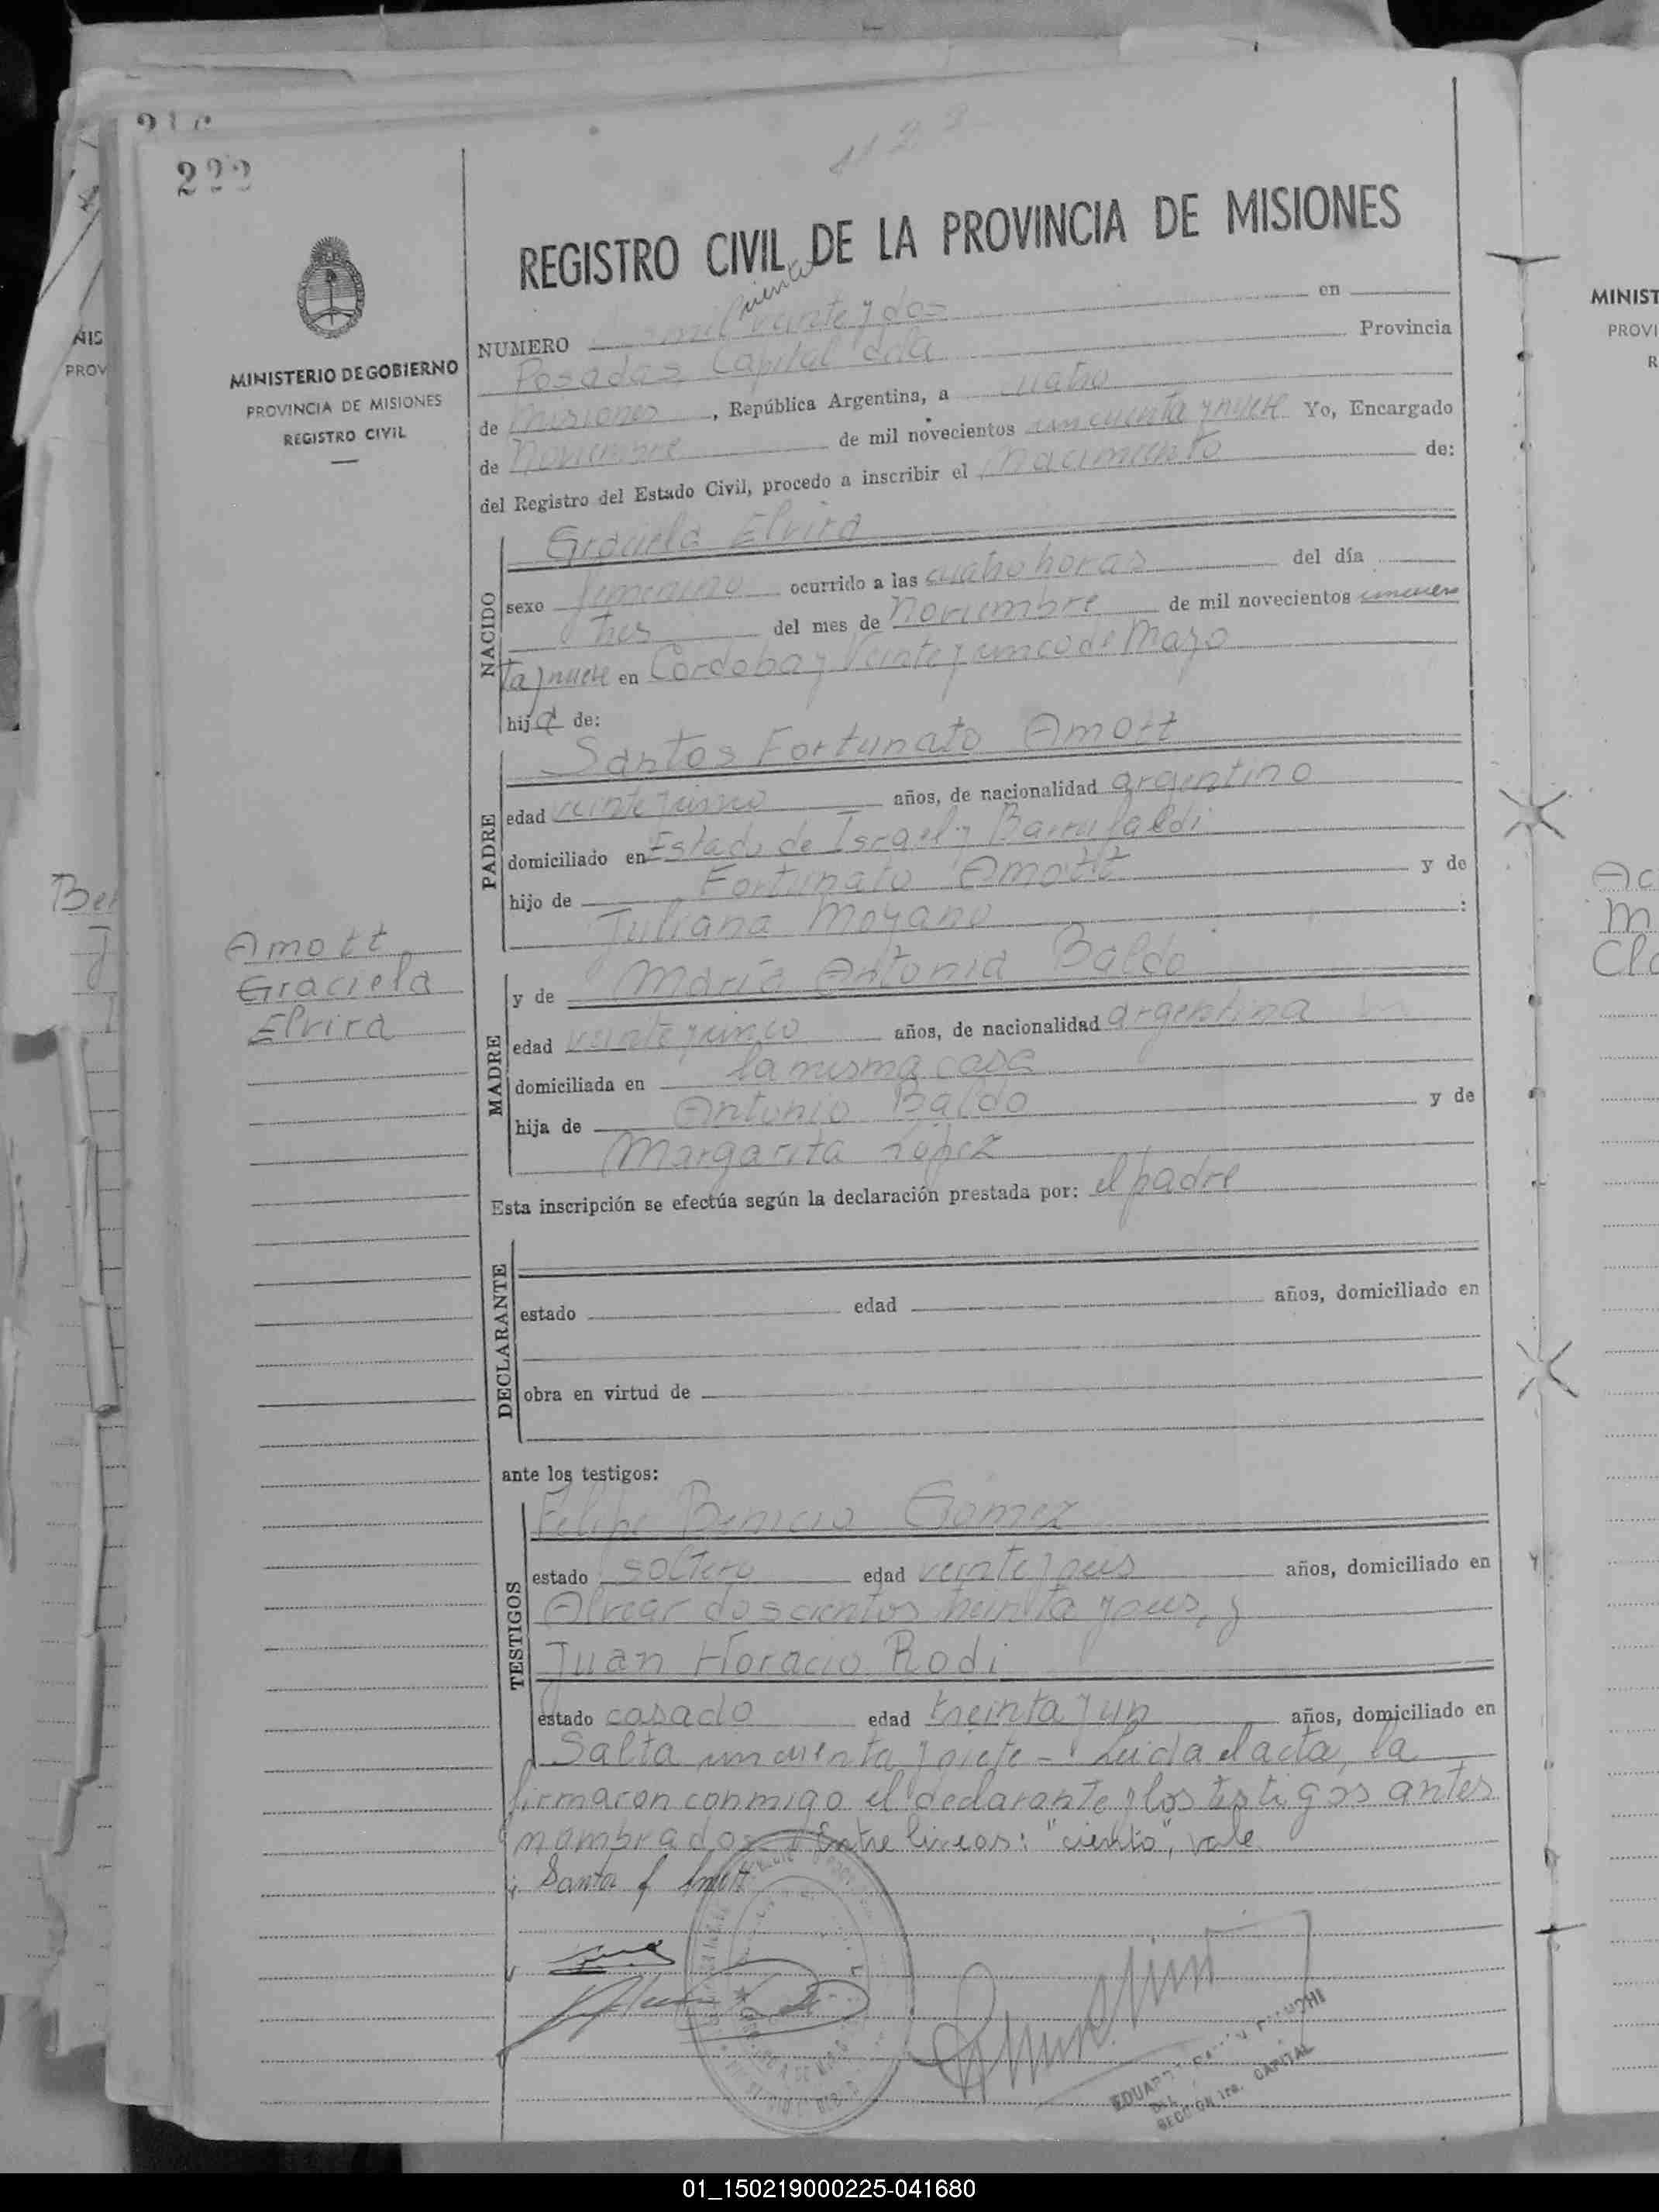 222
1122
REGISTRO CIVIL DE LA PROVINCIA DE MISIONES
MINISTERIO DE GOBIERNO
PROVINCIA DE MISIONES
REGISTRO CIVIL
ciento
NUMERO mil veinte y dos en
Posadas Capital dela Provincia
de Misiones, República Argentina, a cuatro
de Noviembre de mil novecientos cincuenta y nueve Yo, Encargado
del Registro del Estado Civil, procedo a inscribir el nacimiento de:
NACIDO
Graciela Elvira
sexo femenino ocurrido a las cuatro horas del día
tres del mes de Noviembre de mil novecientos cincuen
ta y nueve en Cordoba y Veinte y cinco de Mayo
hija de:
PADRE
Santos Fortunato Amott
edad veinte y cinco años, de nacionalidad argentino
domiciliado en Estado de Israel y
hijo de Fortunato Amott y de
Juliana Moyano :
Amott
Graciela
Elvira
MADRE
y de María Antonia Baldo
edad veinte y cinco años, de nacionalidad argentina
domiciliada en la misma casa
hija de Antonio Baldo y de
Margarita López
Esta inscripción se efectúa según la declaración prestada por: el padre
DECLARANTE
estado edad años, domiciliado en
obra en virtud de
ante los testigos:
TESTIGOS
Felipe Benicio Gomez
estado soltero edad veinte y seis años, domiciliado en
Alvear doscientos treinta y seis, y
Juan Horacio Rodi
estado casado edad treinta y un años, domiciliado en
Salta cincuenta y siete - Leida el acta, la
firmaron conmigo el declarante y los testigos antes
nombrados. Entre lineas: "ciento", vale
Santos f Amott
SECCION 1ra. CAPITAL
MINIST
PROVI
01_150219000225-041680